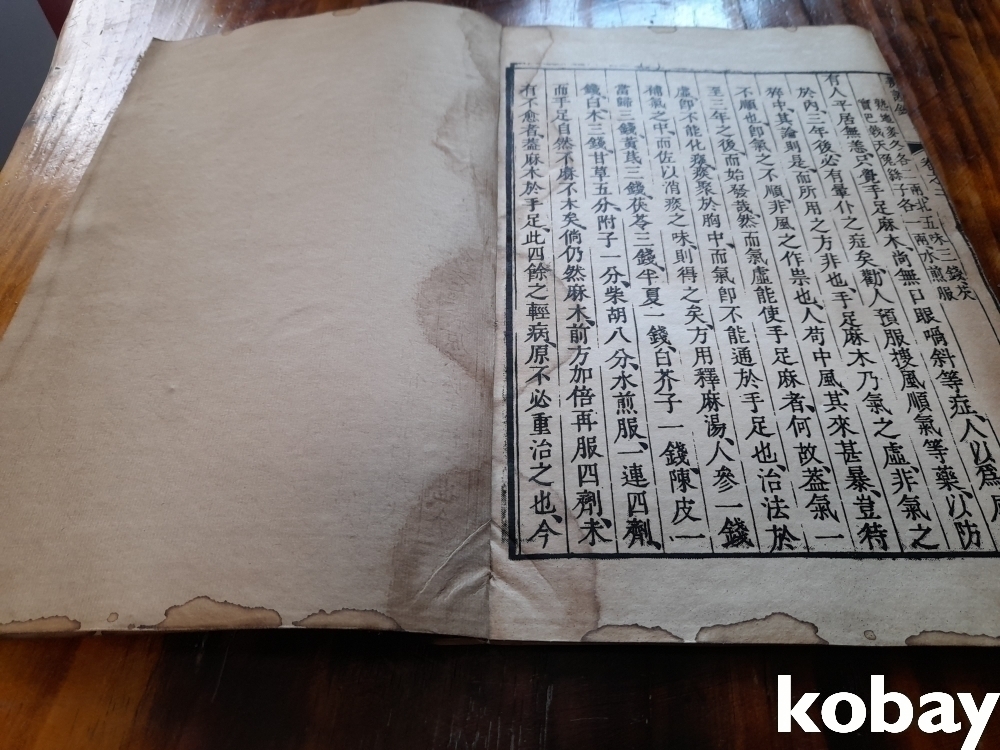 卷之二
熟地麥冬各一兩北五味三錢茨
實巴戟天兔絲子各一兩水煎服
有人平居無恙只覺手足麻木尚無口眼喎斜等症、人以爲風
於內、三年後必有暈仆之症矣、勸人預服搜風順氣等藥、以防
猝中、其論則是、而所用之方非也、手足麻木乃氣之虛、非氣之
不順也、卽氣之不順、非風之作祟也、人苟中風、其來甚暴、豈待
至三年之後而始發哉、然而氣虛能使手足麻者、何故、葢氣一
虛卽不能化痰、痰聚於胸中、而氣卽不能通於手足也、治法於
補氣之中、而佐以消痰之味、則得之矣、方用釋麻湯、人參一錢
當歸三錢、黃芪三錢、茯苓三錢、半夏一錢、白芥子一錢、陳皮一
錢、白木三錢、甘草五分、附子一分、柴胡八分、水煎服、一連四劑、
而手足自然不麻不木矣、倘仍然麻木、前方加倍再服四劑、未
有不愈者、葢麻木於手足、此四餘之輕病、原不必重治之也、今
kobay